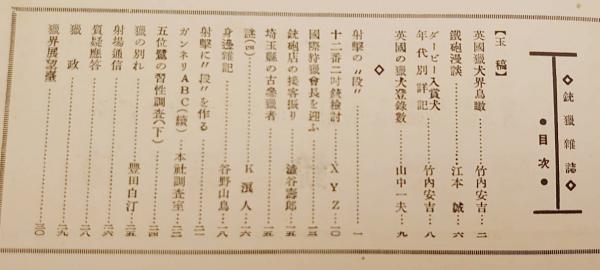 ◇銃獵雜誌◇
●目次●
【玉稿】
英國獵犬界鳥瞰……竹内安吉…二
鐵砲漫談……江本 誠…六
ダービー入賞犬年代別詳記……竹内安吉…八
英國の獵犬登錄數……山中一夫…九
◇
射撃の〝段〟……一
十二番二吋銃檢討……XYZ…一〇
國際狩獵會長を迎ふ……一三
銃砲店の接客振り……澁谷壽郎…一五
埼玉縣の古參獵者……一五
謎(四)……K濱人…一六
身邊雜記……谷野山鳥…一八
射撃に〝段〟を作る……二一
ガンネリABC(續)……本社調査室…二二
五位鷺の習性調査(下)……二四
獵の別れ……豐田白汀…二五
射場通信……二六
質疑應答……二八
獵政……二九
獵界展望臺……三〇